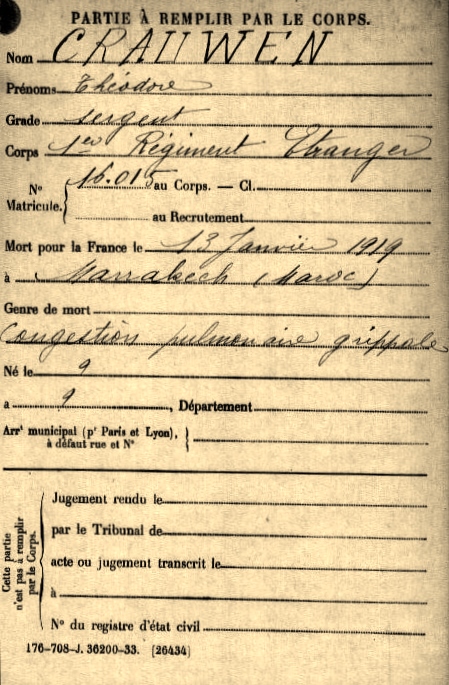 PARTIE À REMPLIR PAR LE CORPS.
Nom CRAUWEN
Prénoms Théodore
Grade sergent
Corps 1er Régiment Etranger
N° Matricule. 16.015 au Corps. — Cl.
au Recrutement
Mort pour la France le 13 Janvier 1919
à Marrakech (Maroc)
Genre de mort
Congestion pulmonaire grippale
Né le 9
a 9, Département
Arrt municipal (pr Paris et Lyon), à défaut rue et N°
Cette partie n'est pas à remplir par le Corps.
Jugement rendu le
par le Tribunal de
acte ou jugement transcrit le
à
N° du registre d'état civil
176-708-J. 36200-33. (26434)